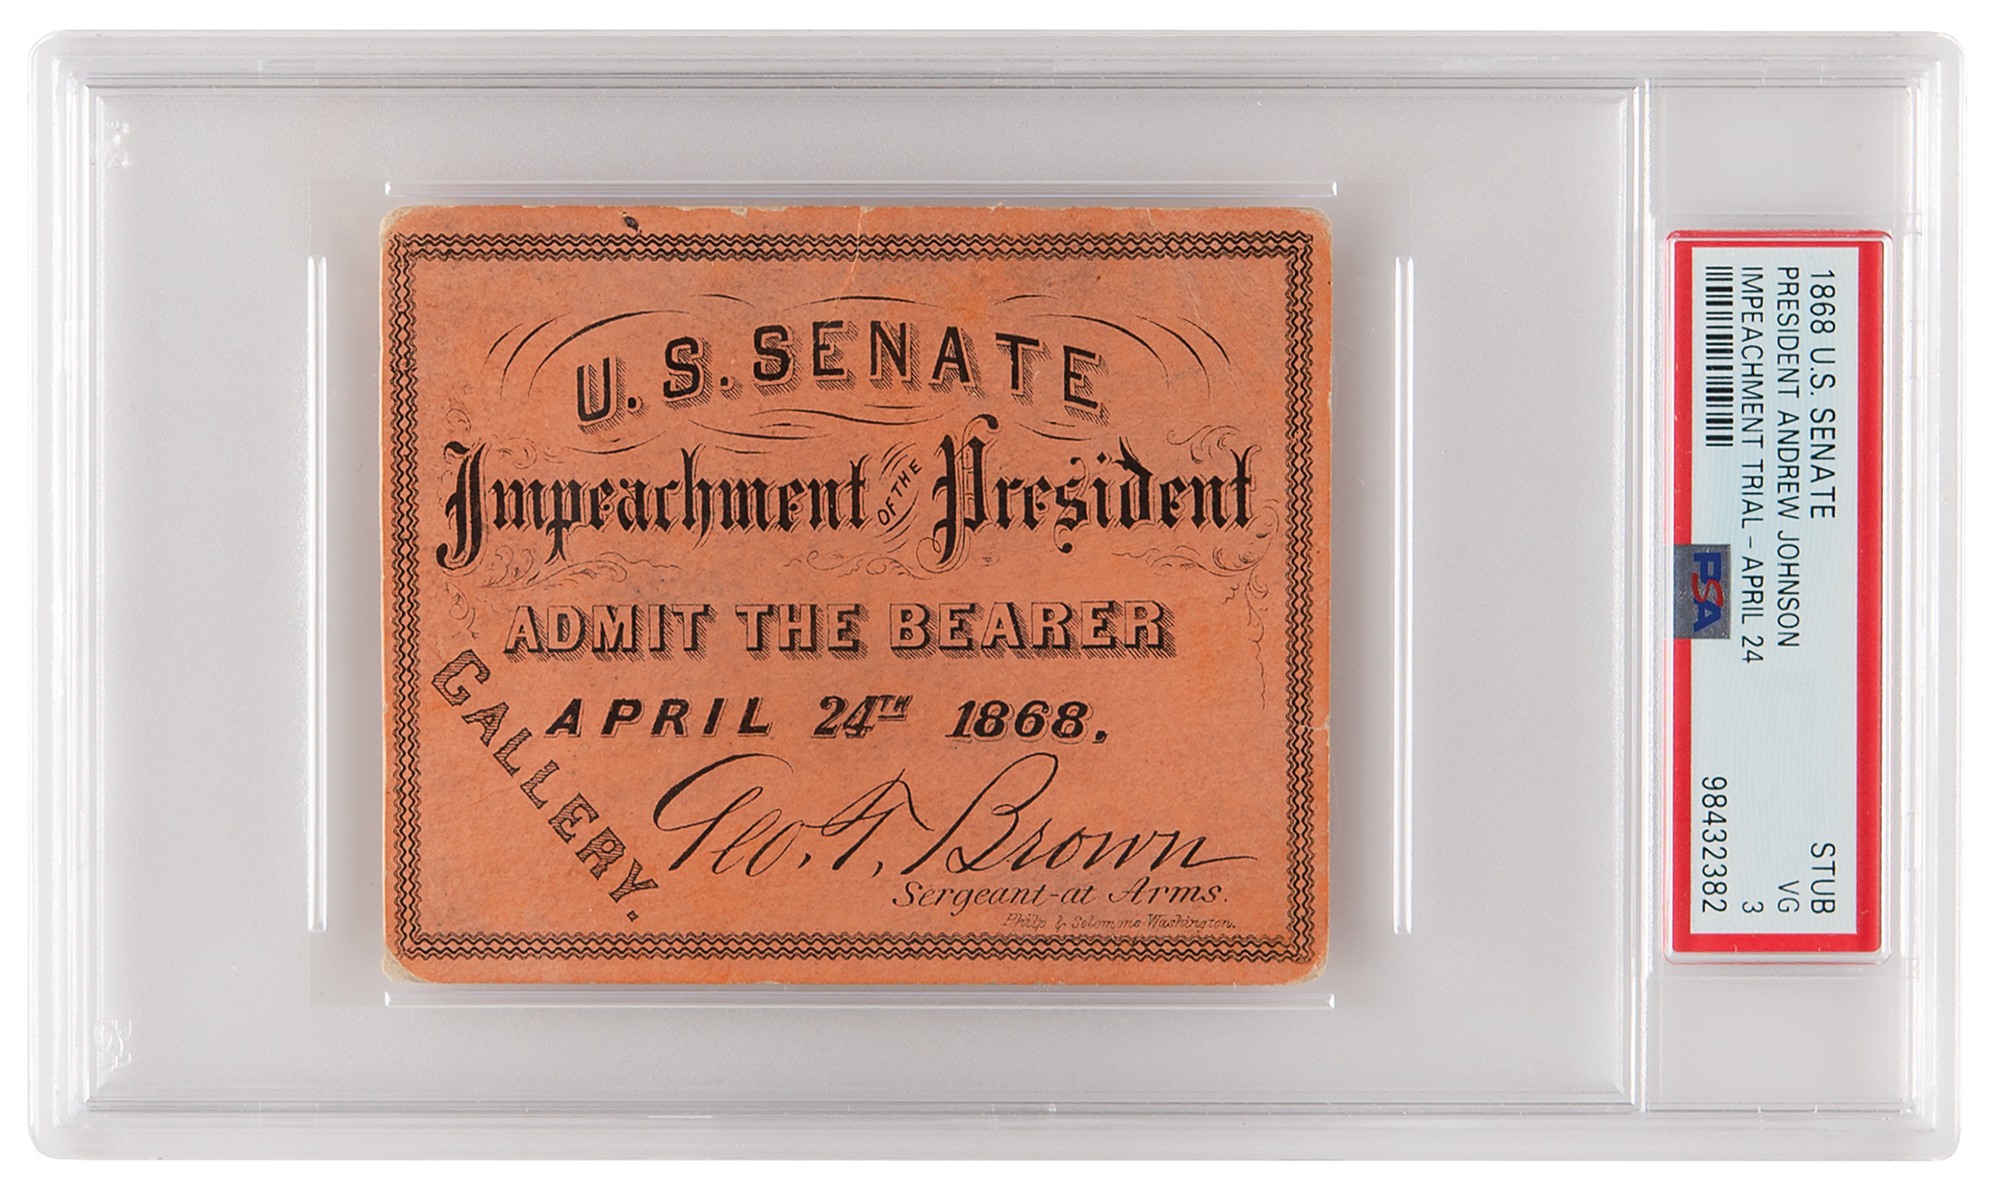 U.S. SENATE
Impeachment OF THE President
ADMIT THE BEARER
APRIL 24TH 1868.
GALLERY.
Geo. T. Brown
Sergeant-at Arms.
Philp & Solomons Washington.
1868 U.S. SENATE STUB
PRESIDENT ANDREW JOHNSON VG
IMPEACHMENT TRIAL - APRIL 24 3
98432382
PSA